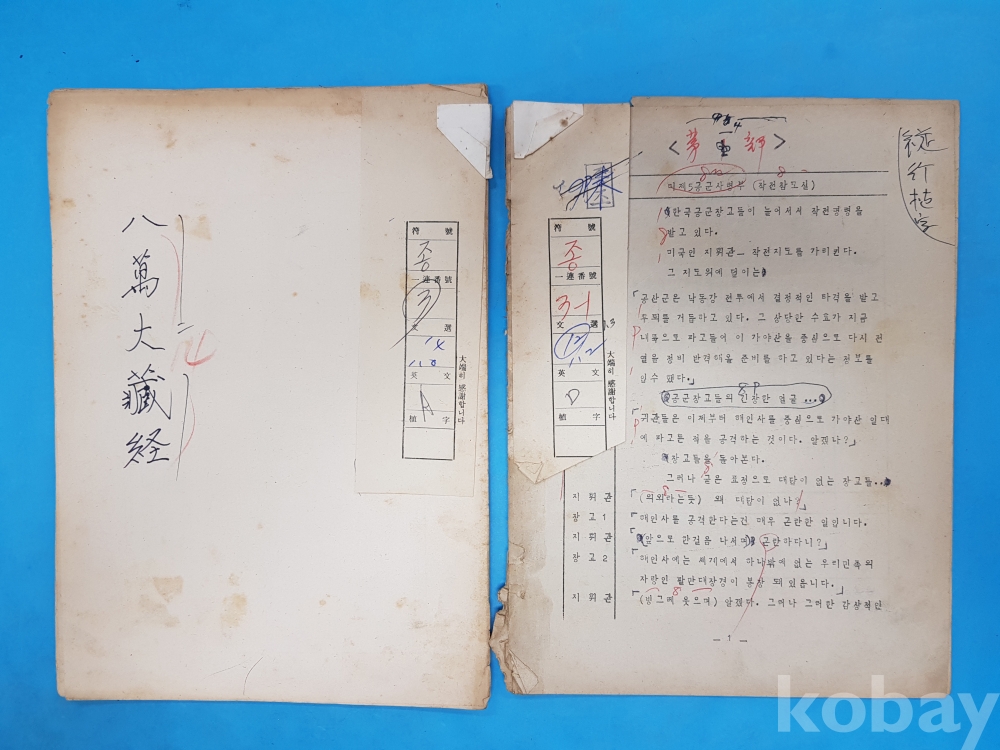 八萬大藏経
符 號
종
一連番號
3
文 選
英 文
A
植 字
大端히 感謝합니다
符 號
종
一連番號
3-1
文 選
12
英 文
D
植 字
大端히 感謝합니다
縦行植字
<第 部>
미제5공군사령부 (작전참모실)
한국공군장교들이 늘어서서 작전명령을
받고 있다.
미국인 지휘관— 작전지도를 가리킨다.
그 지도위에 덮이는
「공산군은 낙동강 전투에서 결정적인 타격을 받고
후퇴를 거듭하고 있다. 그 상당한 수효가 지금
내륙으로 파고들어 이 가야산을 중심으로 다시 전
열을 정비 반격해올 준비를 하고 있다는 정보를
입수 했다.」
공군장교들의 긴장한 얼굴 ...
「귀관들은 이제부터 해인사를 중심으로 가야산 일대
에 파고든 적을 공격하는 것이다. 알겠나?」
장교들을 돌아본다.
그러나 굳은 표정으로 대답이 없는 장교들..
지 휘 관 「(의외라는듯) 왜 대답이 없나?」
장 교 1 「해인사를 공격한다는건 매우 곤란한 일입니다.
지 휘 관 「(앞으로 한걸음 나서며) 곤란하다니?」
장 교 2 「해인사에는 세계에서 하나밖에 없는 우리민족의
자랑인 팔만대장경이 봉장 되 있읍니다.」
지 휘 관 「(빙그레 웃으며) 알겠다. 그러나 그러한 감상적인
— 1 —
kobay